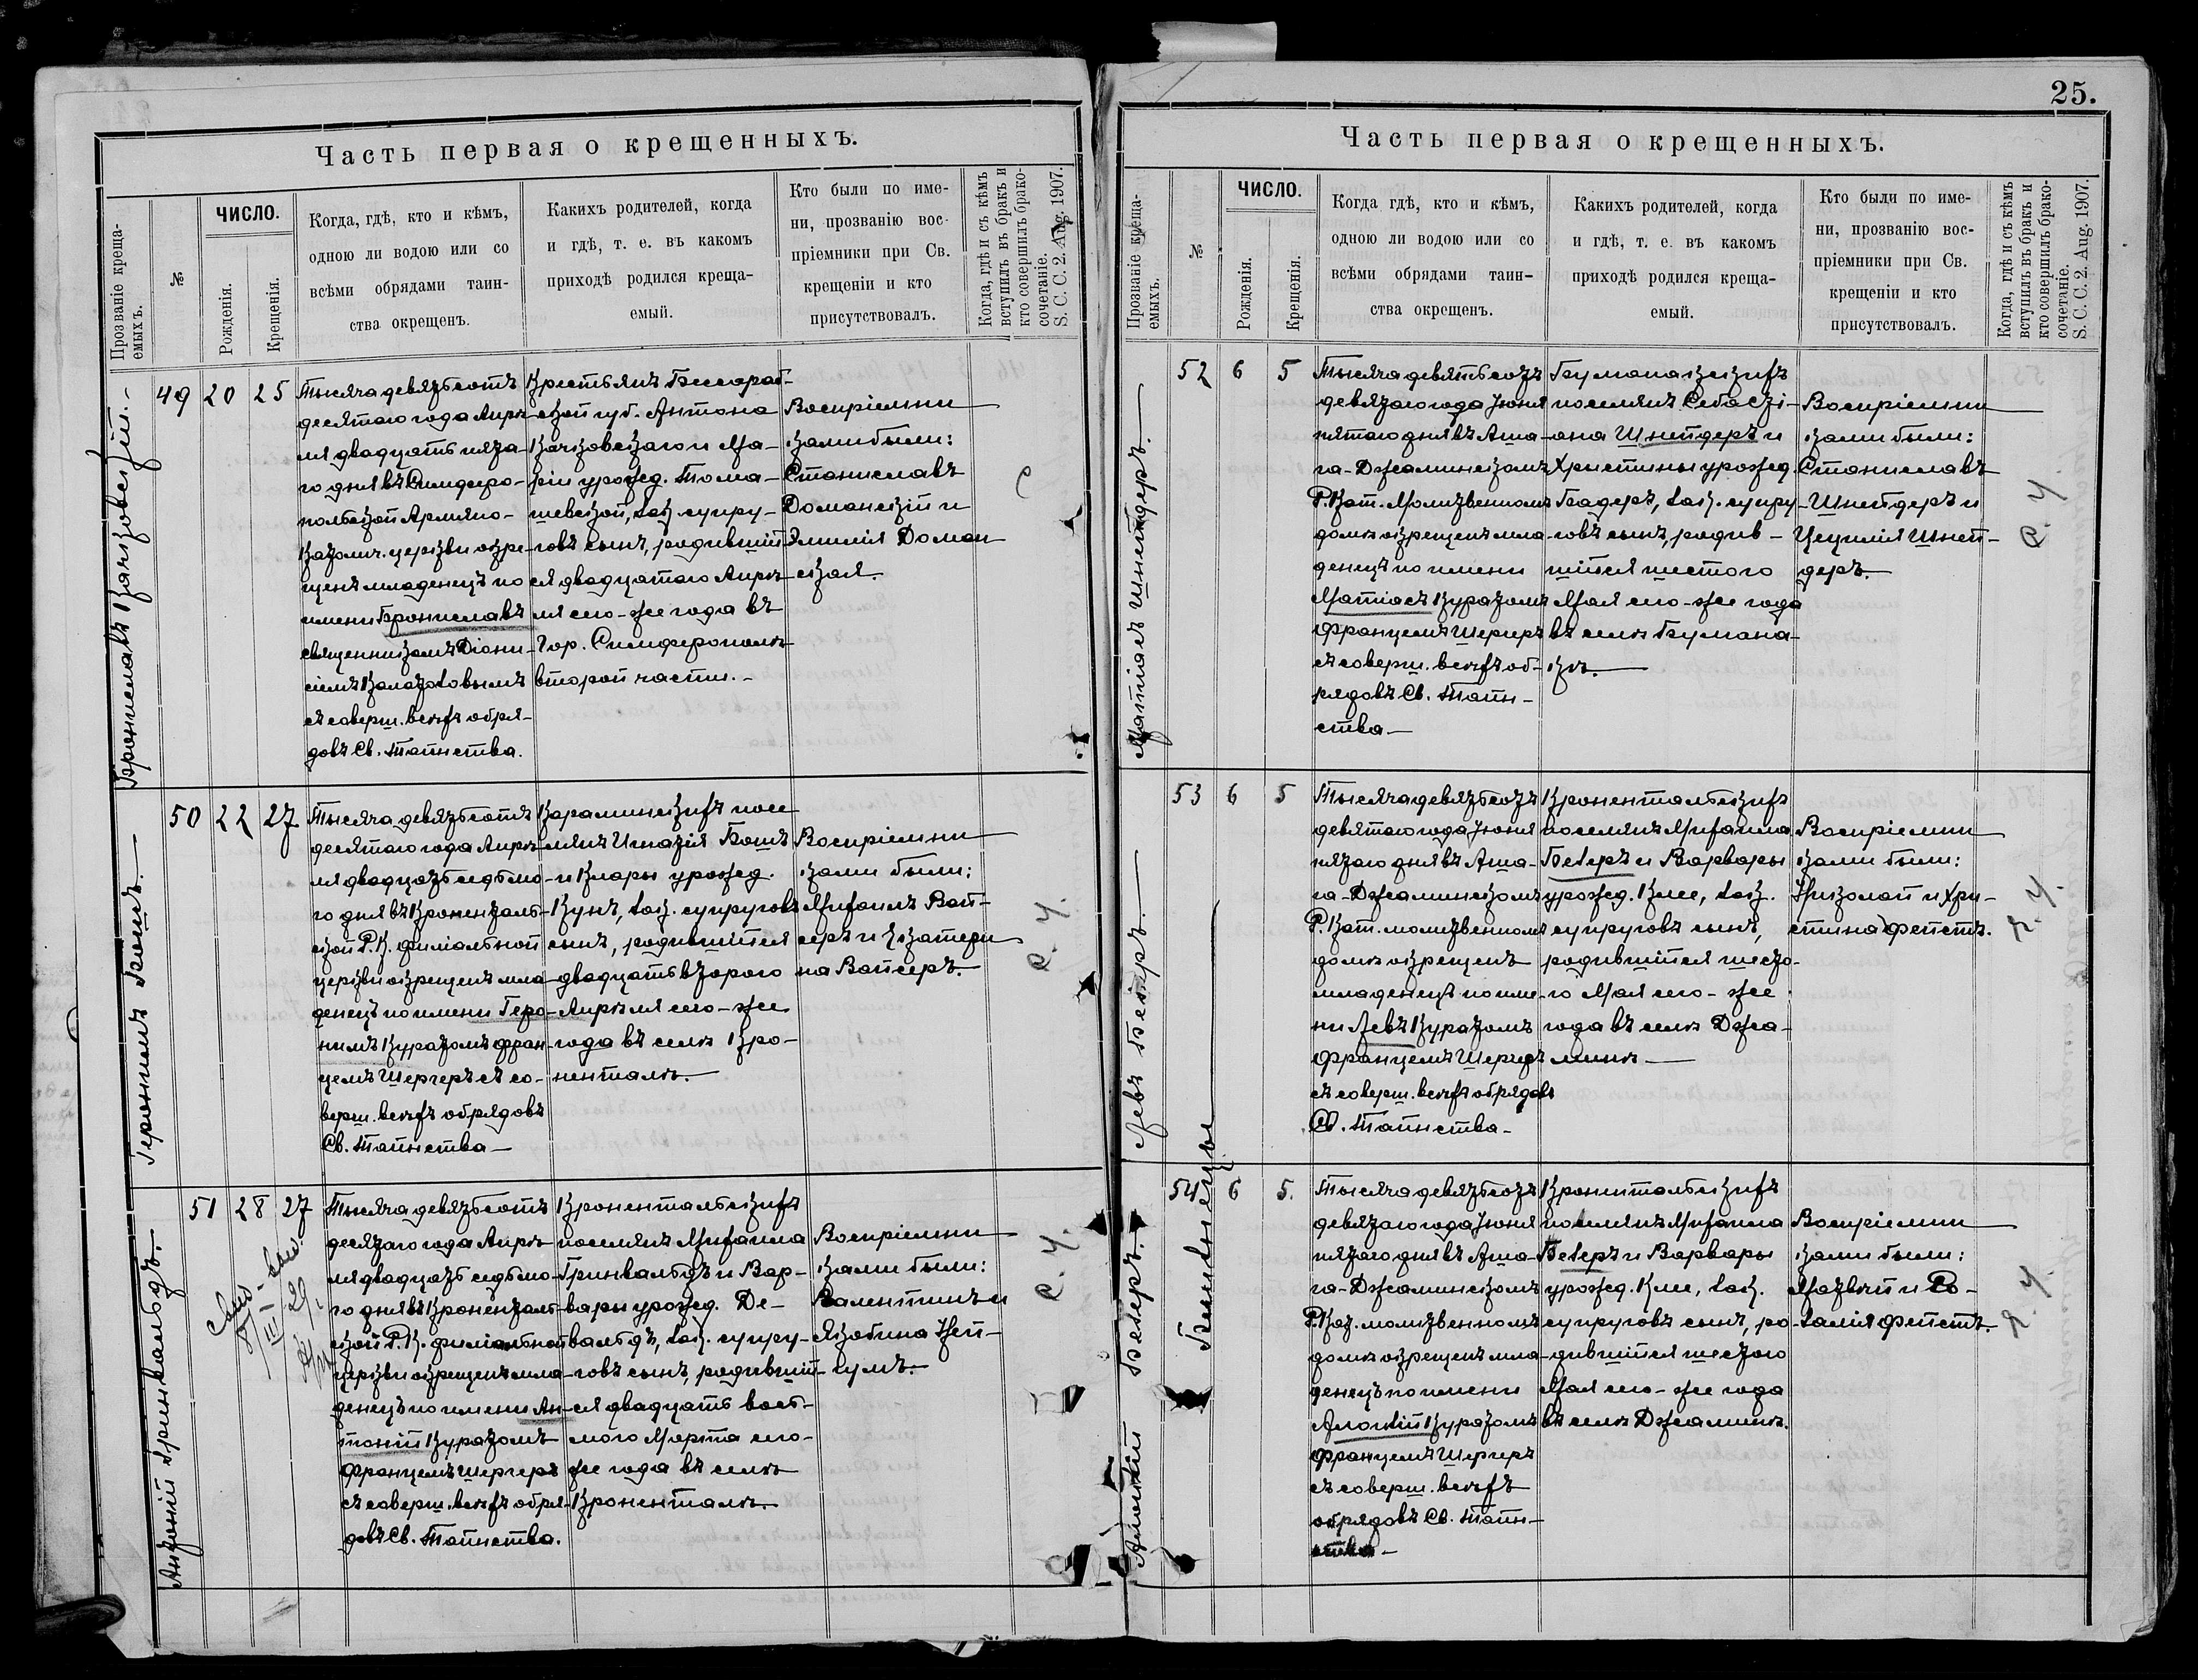 Часть первая о крещенныхъ.
Прозваніе креща-
емыхъ.
№
ЧИСЛО.
Рожденія.
Крещенія.
Когда, гдѣ, кто и кѣмъ,
одною ли водою или со
всѣми обрядами таин-
ства окрещенъ.
Какихъ родителей, когда
и гдѣ, т. е. въ какомъ
приходѣ родился креща-
емый.
Кто были по име-
ни, прозванію вос-
пріемники при Св.
крещеніи и кто
присутствовалъ.
Когда, гдѣ и съ кѣмъ
вступилъ въ бракъ и
кто совершилъ брако-
сочетаніе.
S. C. C. 2. Aug. 1907.
Брониславъ Качковскій.-
49
20
25
Тысяча девятьсотъ
десятаго года Апрѣ-
ля двадцать пята-
го дня въ Симферо-
польской Армяно-
католич. церкви окре-
щенъ младенецъ по
имени Брониславъ
священникомъ Діони-
сіемъ Калатозовымъ
съ соверш. всѣхъ обря-
довъ Св. Таинства.
Крестьянъ Бессараб-
ской губ. Антона
Качковскаго и Ма-
ріи урожд. Тома-
шевской, зак. супру-
говъ сынъ, родившій-
ся двадцатаго Апрѣ-
ля сего-же года въ
гор. Симферополѣ
второй части.-
Воспріемни
ками были:
Станиславъ
Доманскій и
Эмилія Доман
ская.
С
Геронимъ Бошъ.
50
22
27
Тысяча девятьсотъ
десятаго года Апрѣ-
ля двадцать седьмо-
го дня въ Кроненталь-
ской Р. К. филіальной
церкви окрещенъ мла-
денецъ по имени Геро-
нимъ Куратомъ Фран-
цемъ Шергеръ съ со-
верш. всѣхъ обрядовъ
Св. Таинства-
Караминскихъ посе
лянъ Игнатія Бошъ
и Клары урожд.
Кунъ, зак. супруговъ
сынъ, родившійся
двадцать второго
Апрѣля сего-же
года въ селѣ Кро-
ненталѣ.-
Воспріемни
ками были:
Михаилъ Вай-
серъ и Екатери
на Вайсеръ.
С. Ч.
Антоній Гринвальдъ.
51
28
27
III
29
Тысяча девятьсотъ
десятаго года Апрѣ
ля двадцать седьмо-
го дня въ Кроненталь
ской Р. К. филіальной
церкви окрещенъ мла-
денецъ по имени Ан-
тоній Куратомъ
Францемъ Шергеръ
съ соверш. всѣхъ обря-
довъ Св. Таинства.
Кронентальскихъ
поселянъ Михаила
Гринвальдъ и Вар-
вары урожд. Де-
вальдъ, зак. супру-
говъ сынъ, родившій-
ся двадцать вось-
мого Марта сего-
же года въ селѣ
Кроненталѣ.
Воспріемни
ками были:
Валентинъ и
Якобина Ней-
гумъ.
С. Ч.
25.
Часть первая о крещенныхъ.
Прозваніе креща-
емыхъ.
№
ЧИСЛО.
Рожденія.
Крещенія.
Когда гдѣ, кто и кѣмъ,
одною ли водою или со
всѣми обрядами таин-
ства окрещенъ.
Какихъ родителей, когда
и гдѣ, т. е. въ какомъ
приходѣ родился креща-
емый.
Кто были по име-
ни, прозванію вос-
пріемники при Св.
крещеніи и кто
присутствовалъ.
Когда, гдѣ и съ кѣмъ
вступилъ въ бракъ и
кто совершилъ брако-
сочетаніе.
S. C. C. 2. Aug. 1907.
Матіасъ Шнейдеръ.
52
6
5
Тысяча девятьсотъ
девятаго года Іюня
пятаго дня въ Аша-
га-Джаминскомъ
Р. Кат. Молитвенномъ
домѣ окрещенъ мла-
денецъ по имени
Матіасъ Куратомъ
Францемъ Шергеръ
съ соверш. всѣхъ об-
рядовъ Св. Таин-
ства-
Бумонакскихъ
поселянъ Себасті-
ана Шнейдеръ и
Христины урожд.
Бадеръ, зак. супру-
говъ сынъ, родив-
шійся шестого
Мая сего-же года
въ селѣ Бумона-
кѣ.
Воспріемни
ками были:
Станиславъ
Шнейдеръ и
Цецилія Шней-
деръ.
С. Ч.
Левъ Беверъ.
53
6
5
Тысяча девятьсотъ
девятаго года Іюня
пятаго дня въ Аша-
га-Джаминскомъ
Р. Кат. молитвенномъ
домѣ окрещенъ
младенецъ по име-
ни Левъ Куратомъ
Францемъ Шергеръ
съ соверш. всѣхъ обрядовъ
Св. Таинства-
Кронентальскихъ
поселянъ Михаила
Беверъ и Варвары
урожд. Кле, зак.
супруговъ сынъ,
родившійся шесто-
го Мая сего-же
года въ селѣ Джа-
минѣ
Воспріемни
ками были:
Николай и Хри-
стина Фейстъ.
Ч.
Близнецы
Алоизій Беверъ.
54
6
5.
Тысяча девятьсотъ
девятаго года Іюня
пятаго дня въ Аша-
га-Джаминскомъ
Р. Кат. молитвенномъ
домѣ окрещенъ мла-
денецъ по имени
Алоизій Куратомъ
Францемъ Шергеръ
съ соверш. всѣхъ
обрядовъ Св. Таин-
ства-
Кронентальскихъ
поселянъ Михаила
Беверъ и Варвары
урожд. Кле, зак.
супруговъ сынъ, ро-
дившійся шестого
Мая сего-же года
въ селѣ Джаминѣ.
Воспріемни
ками были:
Матвій и Ро-
залія Фейстъ.
Ч.